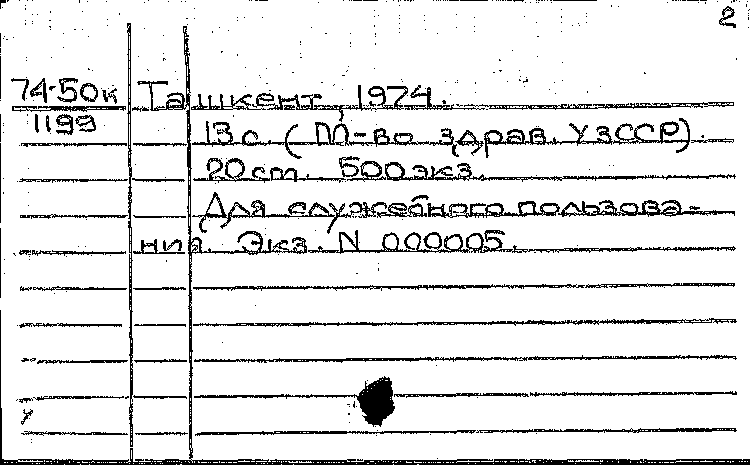 2
74-50к Ташкент, 1974.
1199
13с. (М-во здрав. УзССР).
20 см. 500 экз.
Для служебного пользова-
ния. Экз. N 000005.